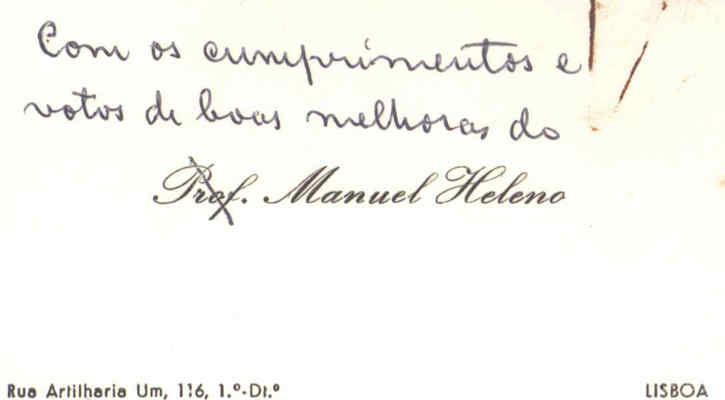 Com os cumprimentos e
votos de boas melhoras do
Prof. Manuel Heleno
Rua Artilharia Um, 116, 1.º-Dt.º
LISBOA